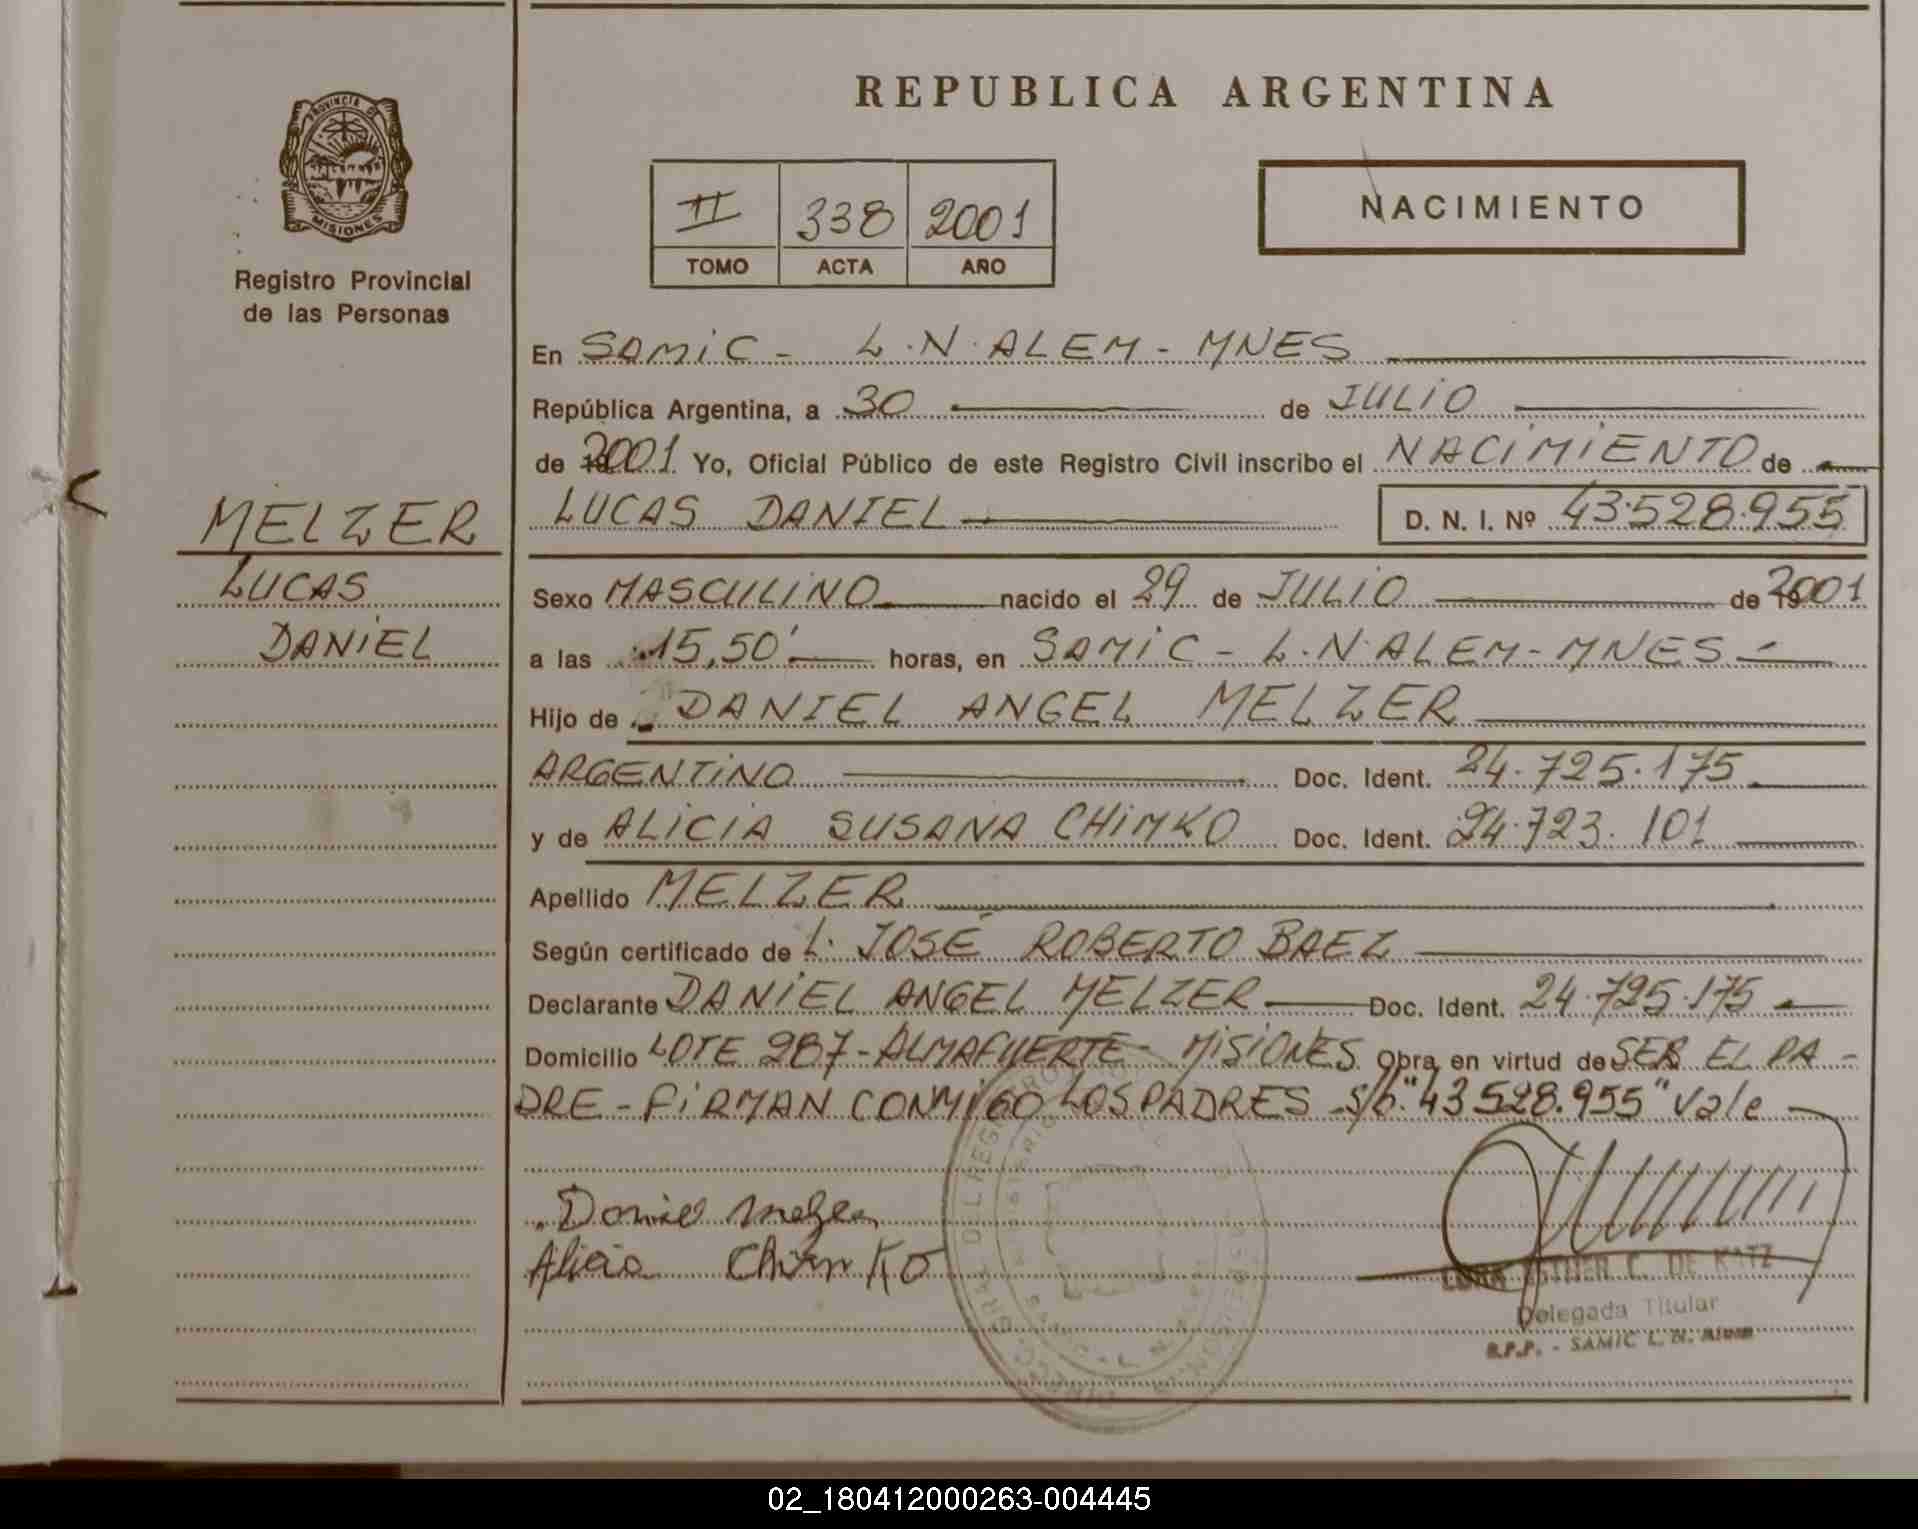 REPUBLICA ARGENTINA
PROVINCIA DE
MISIONES
Registro Provincial
de las Personas
II 338 2001
TOMO ACTA AÑO
NACIMIENTO
MELZER
LUCAS
DANIEL
En SAMIC - L.N. ALEM - MNES
República Argentina, a 30 de JULIO
de 2001 Yo, Oficial Público de este Registro Civil inscribo el NACIMIENTO de
LUCAS DANIEL D. N. I. Nº 43.528.955
Sexo MASCULINO nacido el 29 de JULIO de 2001
a las 15,50' horas, en SAMIC - L.N. ALEM - MNES -
Hijo de DANIEL ANGEL MELZER
ARGENTINO Doc. Ident. 24.725.175
y de ALICIA SUSANA CHIMKO Doc. Ident. 24.723.101
Apellido MELZER
Según certificado de L. JOSÉ ROBERTO BAEZ
Declarante DANIEL ANGEL MELZER Doc. Ident. 24.725.175
Domicilio LOTE 287 - ALMAFUERTE - MISIONES Obra en virtud de SER EL PA-
DRE - FIRMAN CONMIGO LOS PADRES - S/b: "43.528.955" Vale
Daniel Melzer
Alicia Chimko
ESTHER C. DE KATZ
Delegada Titular
R.P.P. - SAMIC L. N. Alem
02_180412000263-004445